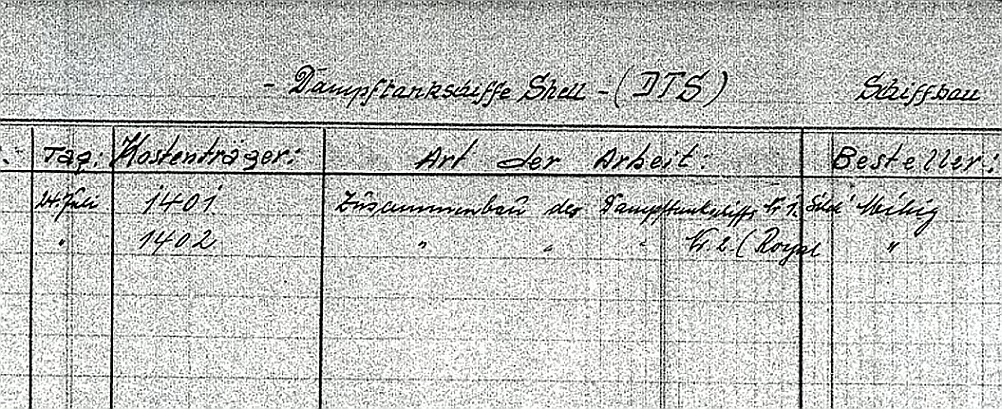 - Dampftankschiffe Shell - (DTS) Schiffbau
Tag: Kostenträger: Art der Arbeit: Besteller:
24. Juli 1401 Zusammenbau des Dampftankschiffs Nr 1. Shell
" 1402 " " " Nr. 2. (Royal "